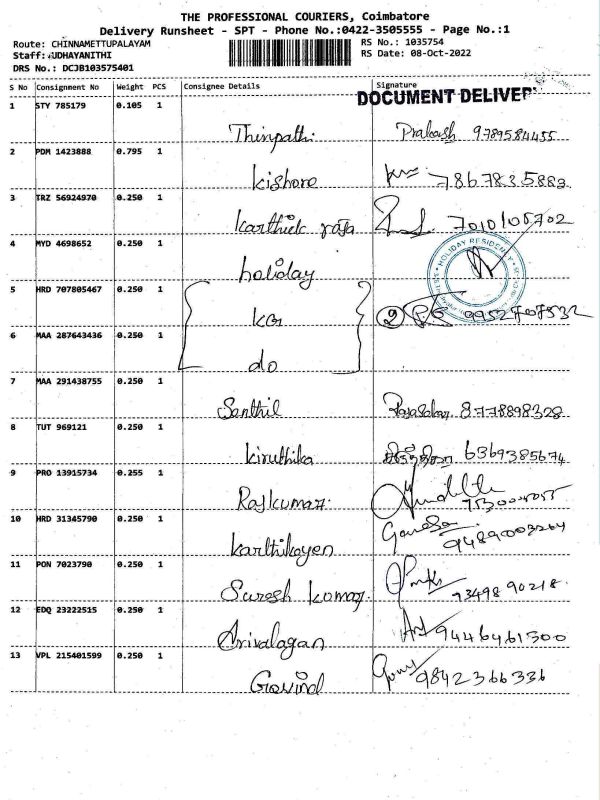 THE PROFESSIONAL COURIERS, Coimbatore
Delivery Runsheet - SPT - Phone No.:0422-3505555 - Page No.:1
Route: CHINNAMETTUPALAYAM RS No.: 1035754
Staff: UDHAYANITHI RS Date: 08-Oct-2022
DRS No.: DCJB103575401
S No Consignment No Weight PCS Consignee Details Signature
DOCUMENT DELIVER
1 STY 785179 0.105 1
Thirupathi Prakash 9789584455
2 PDM 1423888 0.795 1
Kishore 7867835883
3 TRZ 56924970 0.250 1
Karthick raja 7010105702
4 MYD 4698652 0.250 1
holiday HOLIDAY RESIDENCY
5 HRD 707805467 0.250 1
KG 2 9952707532
6 MAA 287643436 0.250 1
do
7 MAA 291438755 0.250 1
Santhil 8778898328
8 TUT 969121 0.250 1
Kiruthika 6369385674
9 PRO 13915734 0.255 1
Rajkumar
10 HRD 31345790 0.250 1
Karthikeyen Ganesa 9489003264
11 PON 7023790 0.250 1
Suresh Kumar 93498 90218
12 EDQ 23222515 0.250 1
Arivalagan 9446461300
13 VPL 215401599 0.250 1
Govind 9842366336